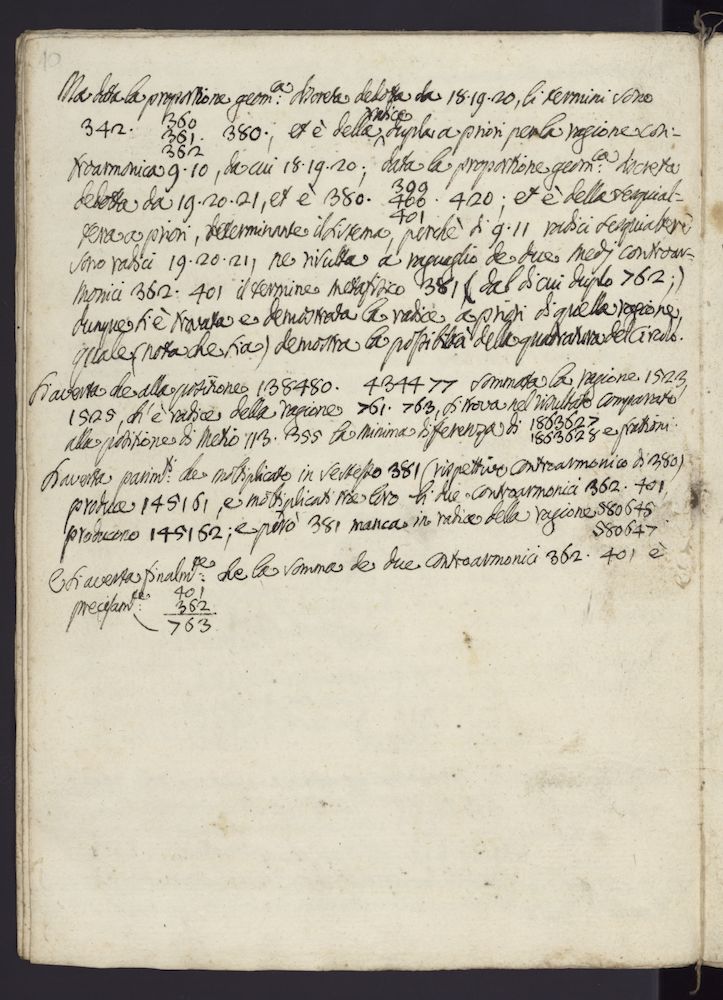 10
Ma data la proportione geom.ca discreta dedotta da 18. 19. 20, li termini sono
360
342. 361. 380., et è della radice dupla a priori per la ragione con-
362
troarmonica 9. 10, da cui 18. 19. 20; data la proportione geom.ca discreta
399
dedotta da 19. 20. 21, et è 380. 400. 420; et è della sesquial-
401
tera a priori, determinante il sistema, perchè di 9. 11 radici sesquialtere
sono radici 19. 20. 21, ne risulta a ragguaglio de due medj controar-
monici 362. 401 il termine metafisico 381 (dal di cui duplo 762;)
dunque si è trovata e demostrata la radice a priori di quella ragione,
quale (nota che sia) demostra la possibilità della quadratura del Circolo.
Si averta che alla positione 138480. 434477 sommata la ragione 1523,
1525, ch'è radice della ragione 761. 763, si trova nel risultato comparato
alla positione di Metio 113. 355 la minima diferenza di 1863627
1863628 e frattioni.
Si averta parim.ti che moltiplicato in se stesso 381 (rispettivo controarmonico di 380)
produce 145161, e moltiplicati tra loro li due controarmonici 362. 401,
producono 145162; e però 381 manca in radice della ragione 580645
580647.
E si averta finalm.te che la somma de due controarmonici 362. 401 è
precisam.te 401
362
763